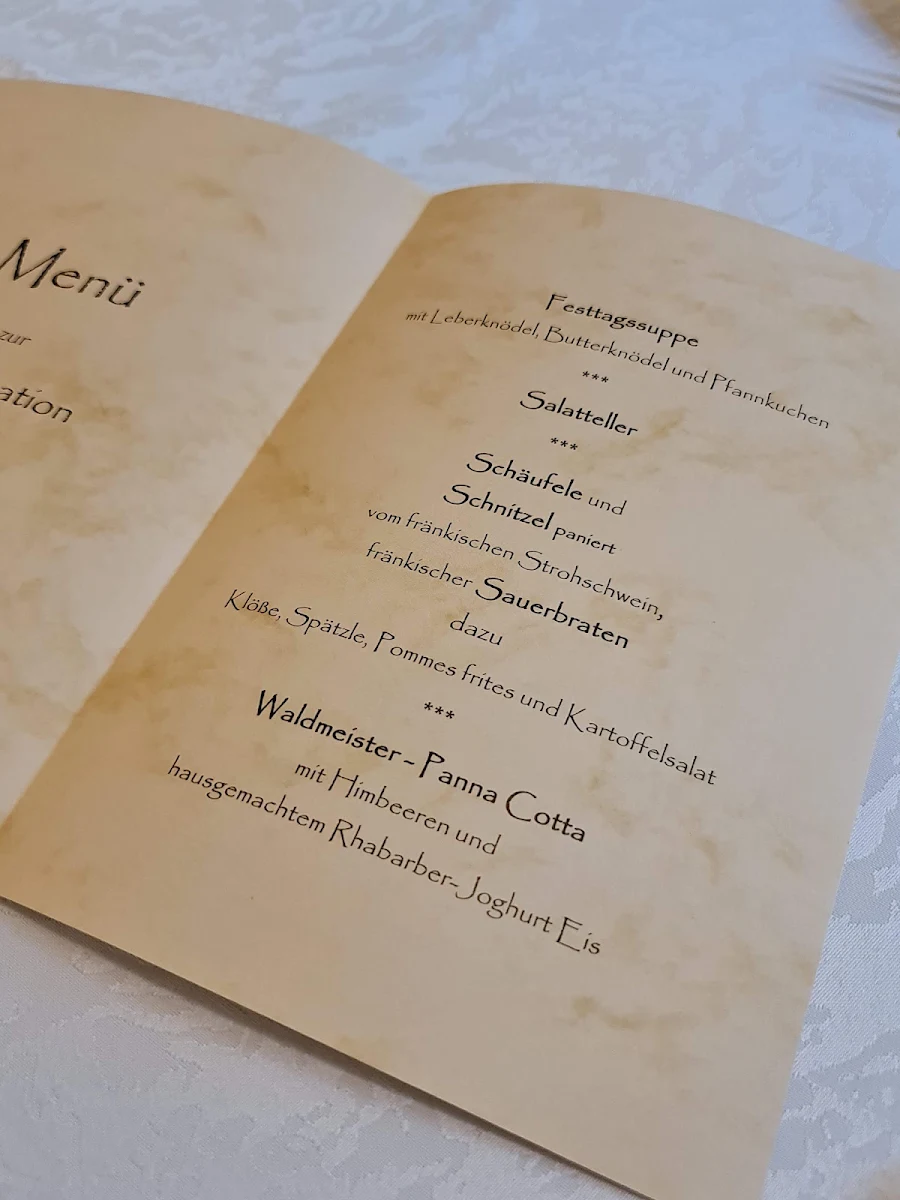 Menü
zur
ation
Festtagssuppe
mit Leberknödel, Butterknödel und Pfannkuchen
***
Salatteller
***
Schäufele und
Schnitzel paniert
vom fränkischen Strohschwein,
fränkischer Sauerbraten
dazu
Klöße, Spätzle, Pommes frites und Kartoffelsalat
***
Waldmeister - Panna Cotta
mit Himbeeren und
hausgemachtem Rhabarber-Joghurt Eis